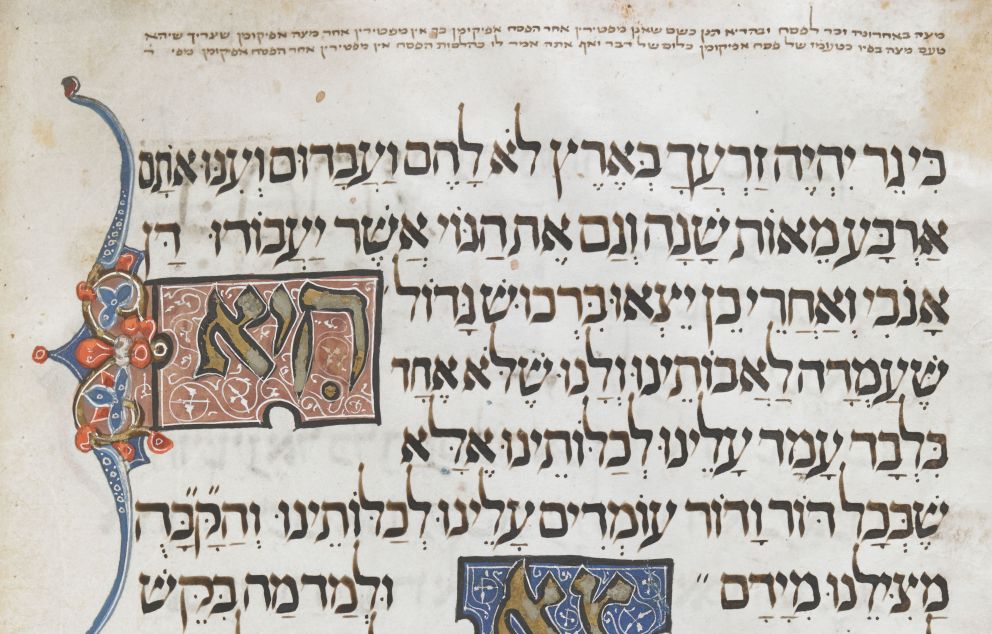 מצה באחרונה זכר לפסח ובהדיא תנן כשם שאין מפטירין אחר הפסח אפיקומן כך אין מפטירין אחר מצה אפיקומן שצריך שיהא
טעם מצה בפיו כטעמו של פסח אפיקומן כלום של דבר ואף אתה אמר לו כהלכות הפסח אין מפטירין אחר הפסח אפיקומן מפי
כִּי גֵר יִהְיֶה זַרְעֲךָ בְּאֶרֶץ לֹא לָהֶם וַעֲבָדוּם וְעִנּוּ אֹתָם
אַרְבַּע מֵאוֹת שָׁנָה וְגַם אֶת הַגּוֹי אֲשֶׁר יַעֲבוֹדוּ דָּן
אָנֹכִי וְאַחֲרֵי כֵן יֵצְאוּ בִּרְכוּשׁ גָּדוֹל
הִיא
שֶׁעָמְדָה לַאֲבוֹתֵינוּ וְלָנוּ שֶׁלֹּא אֶחָד
בִּלְבַד עָמַד עָלֵינוּ לְכַלּוֹתֵינוּ אֶלָּא
שֶׁבְּכָל דּוֹר וָדוֹר עוֹמְדִים עָלֵינוּ לְכַלּוֹתֵינוּ וְהַקָּבָּ״ה
מַצִּילֵנוּ מִיָּדָם ״ צֵא וּלְמַד מַה בִּקֵּשׁ